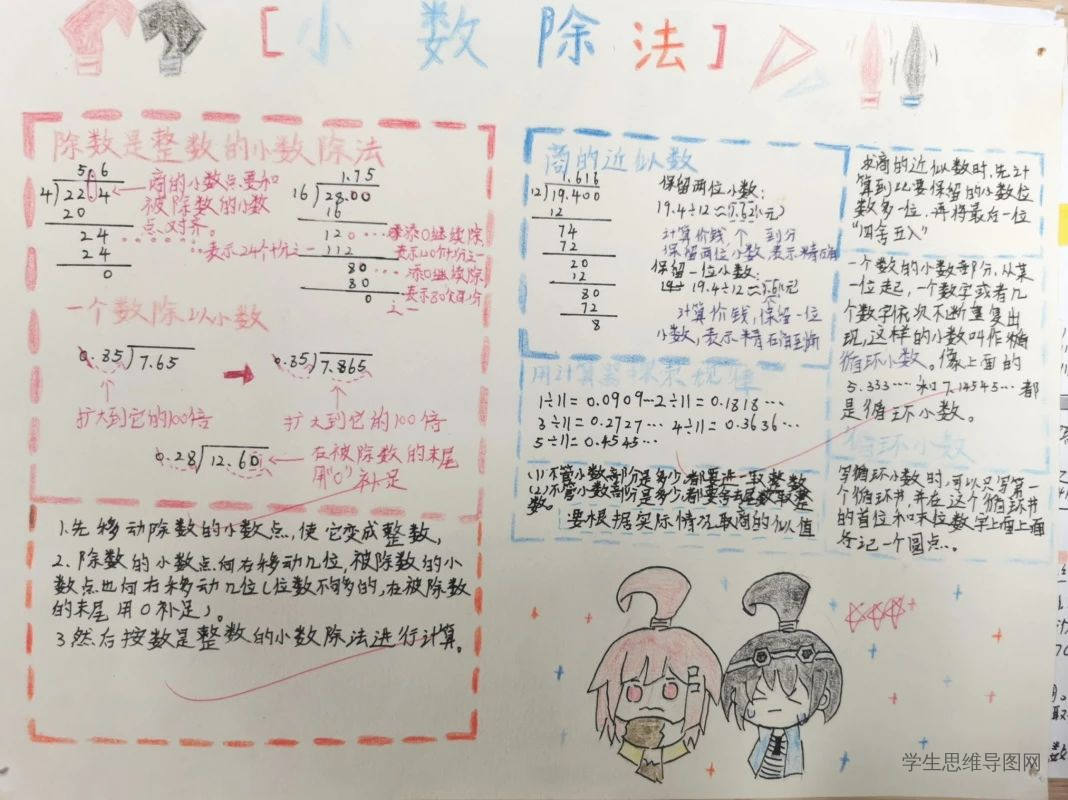 [小数除法]
除数是整数的小数除法
5.6
4 22.4
20
24
24
0
商的小数点要和
被除数的小数
点对齐。
表示24个十分之一
1.75
16 28.00
16
120
112
80
80
0
添0继续除
表示120个十分之一
添0继续除
表示80个百分
之一
一个数除以小数
0.85 7.65
扩大到它的100倍
0.35 7.865
扩大到它的100倍
0.28 12.60
在被除数的末尾
用"0"补足
1.先移动除数的小数点,使它变成整数,
2.除数的小数点向右移动几位,被除数的小
数点也向右移动几位(位数不够的,在被除数
的末尾用0补足)。
3然后按数是整数的小数除法进行计算。
商的近似数
1.616
12 19.400
12
74
72
20
12
80
72
8
保留两位小数:
19.4÷12≈1.62(元)
计算价钱 到分
保留两位小数,表示精确
保留一位小数:
19.4÷12≈1.6元
计算价钱,保留一位
小数,表示精确到角
用计算器探索规律
1÷11=0.0909…2÷11=0.1818…
3÷11=0.2727… 4÷11=0.3636…
5÷11=0.4545…
(1)不管小数部分是多少,都要进一取整数
(2)不管小数部分是多少,都要舍去尾数取整
数。
要根据实际情况取商的似值
求商的近似数时,先计
算到比要保留的小数位
数多一位,再将最后一位
"四舍五入"
一个数的小数部分,从某
一位起,一个数字或者几
个数字依次不断重复出
现,这样的小数叫作循
循环小数。像上面的
5.333…和7.14545…都
是循环小数。
循环小数
写循环小数时,可以只写第一
个循环节,并在这个循环节
的首位和末位数字上面上面
各记一个圆点.。
学生思维导图网